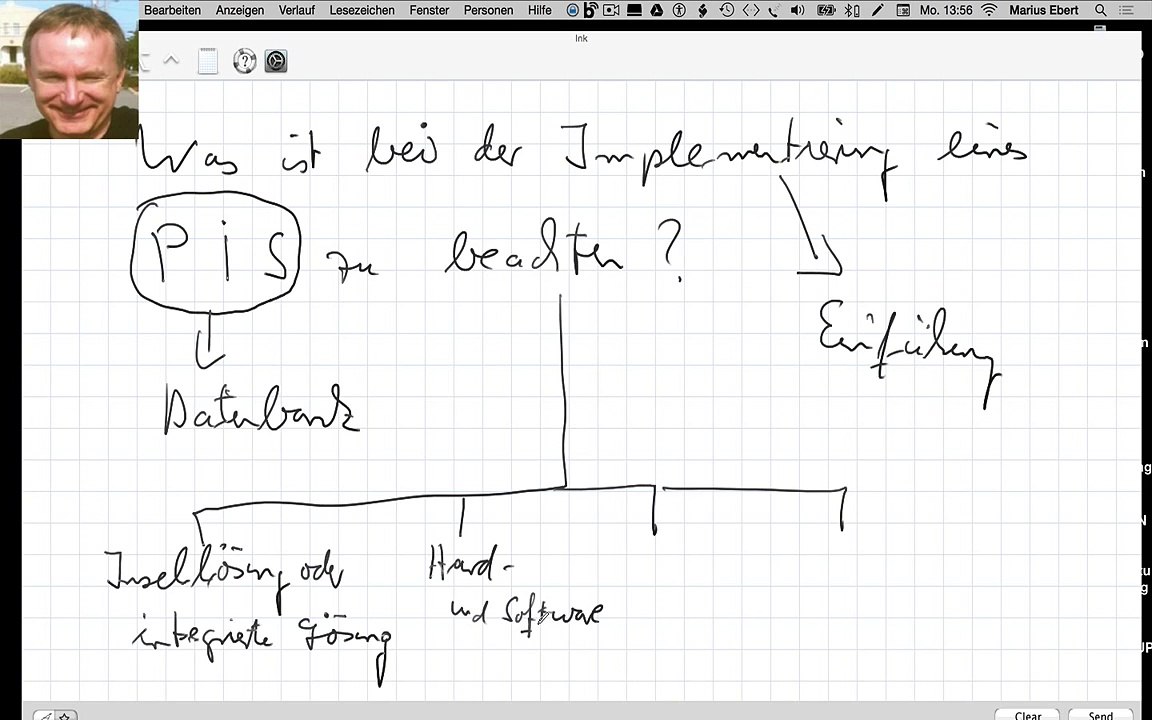 Bearbeiten Anzeigen Verlauf Lesezeichen Fenster Personen Hilfe Mo. 13:56 Marius Ebert
Ink
Was ist bei der Implementierung eines
PiS zu beachten?
Einführung
Datenbank
Insellösung oder
integrierte Lösung
Hard-
und Software
Clear Send